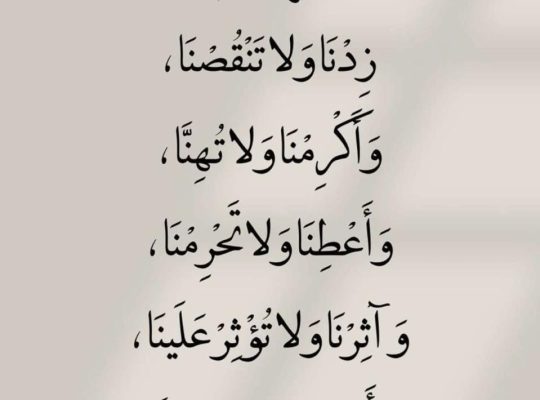 زِدْنَا وَلا تَنْقُصْنَا،
وَأَكْرِمْنَا وَلا تُهِنَّا،
وَأَعْطِنَا وَلا تَحْرِمْنَا،
وَآثِرْنَا وَلا تُؤْثِرْ عَلَينَا،